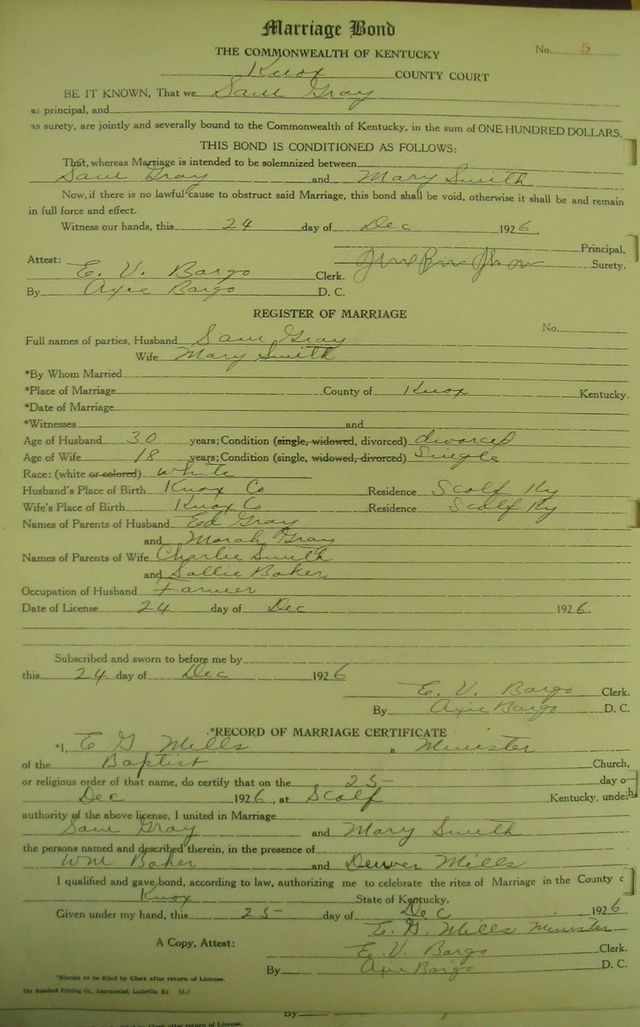 Marriage Bond
THE COMMONWEALTH OF KENTUCKY No. 5
Knox COUNTY COURT
BE IT KNOWN, That we Sam Gray
as principal, and
as surety, are jointly and severally bound to the Commonwealth of Kentucky, in the sum of ONE HUNDRED DOLLARS.
THIS BOND IS CONDITIONED AS FOLLOWS:
That, whereas Marriage is intended to be solemnized between
Sam Gray and Mary Smith
Now, if there is no lawful cause to obstruct said Marriage, this bond shall be void, otherwise it shall be and remain
in full force and effect.
Witness our hands, this 24 day of Dec 1926.
Principal.
Attest: Surety.
E. V. Bargo Clerk.
By Axie Bargo D. C.
REGISTER OF MARRIAGE
No.
Full names of parties, Husband Sam Gray
Wife Mary Smith
*By Whom Married
*Place of Marriage County of Knox Kentucky.
*Date of Marriage
*Witnesses and
Age of Husband 30 years; Condition (single, widowed, divorced) divorced
Age of Wife 18 years; Condition (single, widowed, divorced) Single
Race: (white or colored) White
Husband's Place of Birth Knox Co Residence Scalf Ky
Wife's Place of Birth Knox Co Residence Scalf Ky
Names of Parents of Husband Ed Gray
and Morah Gray
Names of Parents of Wife Charlie Smith
and Sallie Baker
Occupation of Husband Farmer
Date of License 24 day of Dec 1926.
Subscribed and sworn to before me by
this 24 day of Dec 1926
E. V. Bargo Clerk.
By Axie Bargo D. C.
*RECORD OF MARRIAGE CERTIFICATE
*I, E G Mills a Minister
of the Baptist Church,
or religious order of that name, do certify that on the 25 day o
Dec 1926, at Scalf Kentucky, under
authority of the above license, I united in Marriage
Sam Gray and Mary Smith
the persons named and described therein, in the presence of
Wm Baker and Denver Mills
I qualified and gave bond, according to law, authorizing me to celebrate the rites of Marriage in the County
Knox State of Kentucky.
Given under my hand, this 25 day of Dec 1926
E. G. Mills Minister
A Copy, Attest: E. V. Bargo Clerk.
By Axie Bargo D. C.
*Blanks to be filled by Clerk after return of License.
The Standard Printing Co., Incorporated, Louisville, Ky.
By
by Clerk after return of License.